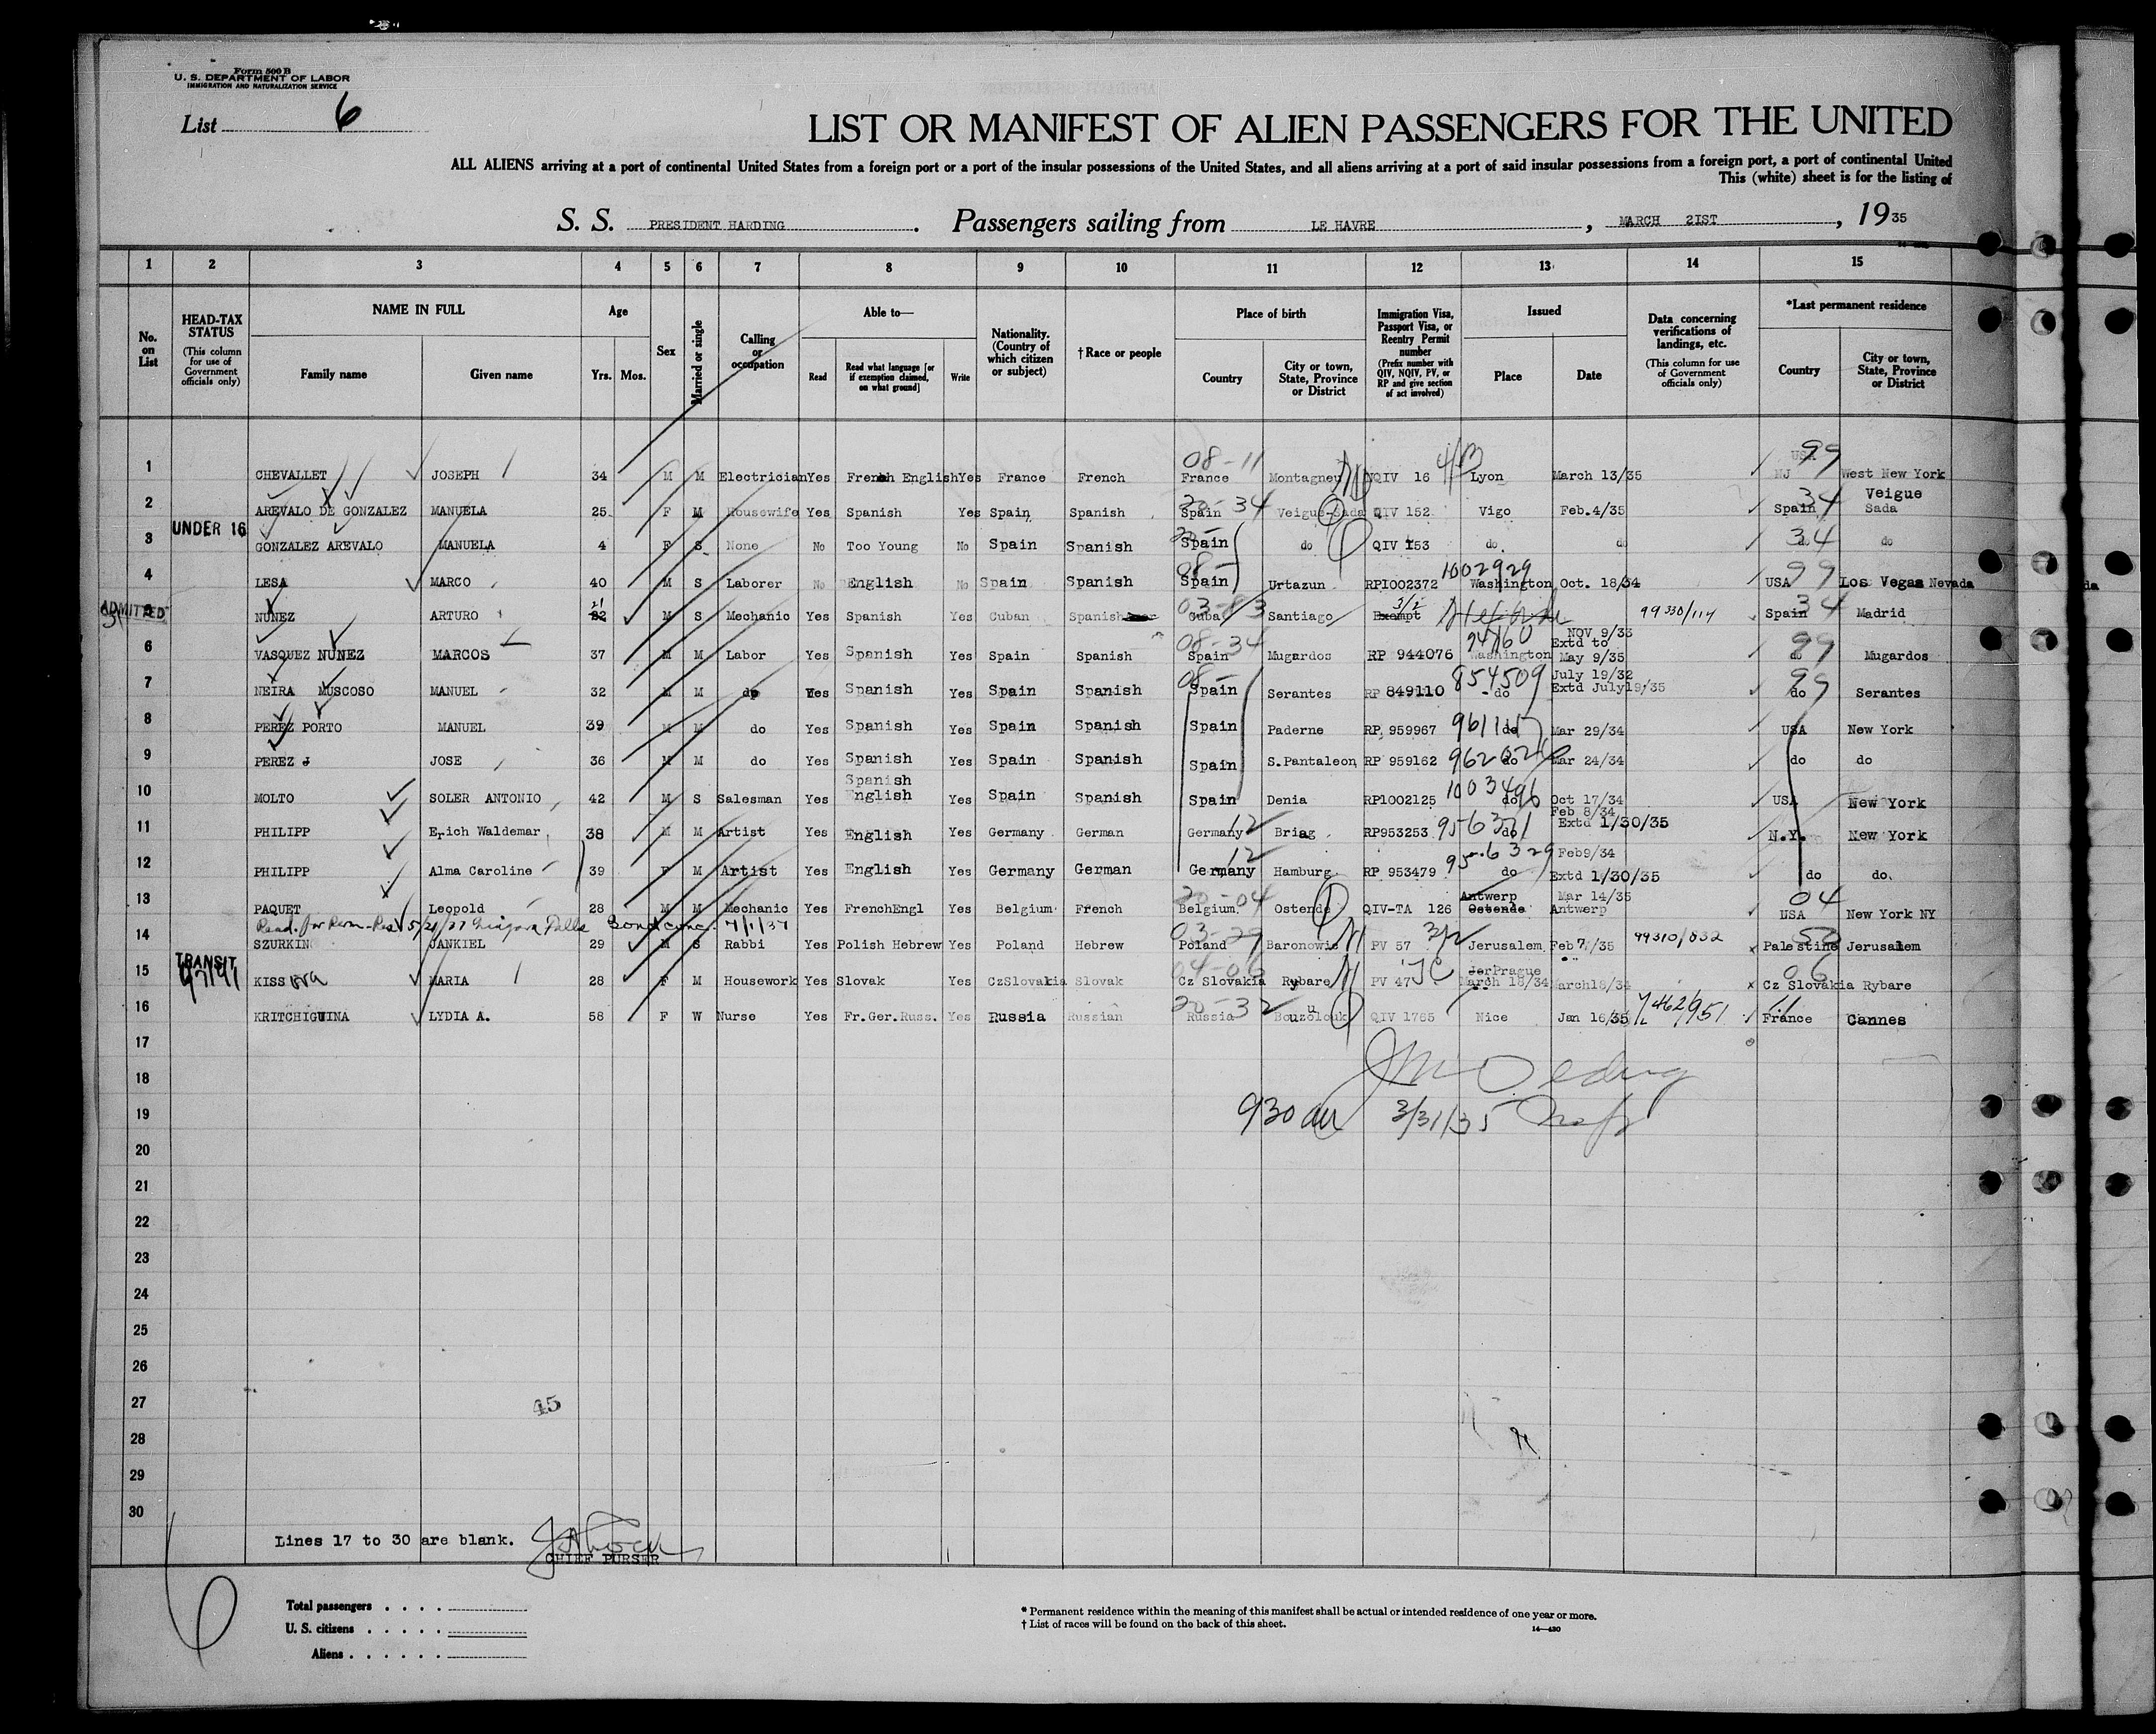 Form 500 B
U. S. DEPARTMENT OF LABOR
IMMIGRATION AND NATURALIZATION SERVICE
List 6
LIST OR MANIFEST OF ALIEN PASSENGERS FOR THE UNITED
ALL ALIENS arriving at a port of continental United States from a foreign port or a port of the insular possessions of the United States, and all aliens arriving at a port of said insular possessions from a foreign port, a port of continental United
This (white) sheet is for the listing of
S. S. PRESIDENT HARDING. Passengers sailing from LE HAVRE, MARCH 2IST, 1935
1 2 3 4 5 6 7 8 9 10 11 12 13 14 15
No. on List
HEAD-TAX STATUS (This column for use of Government officials only)
NAME IN FULL Family name Given name
Age Yrs. Mos.
Sex
Married or single
Calling or occupation
Able to— Read Read what language [or if exemption claimed, on what ground] Write
Nationality. (Country of which citizen or subject)
† Race or people
Place of birth Country City or town, State, Province or District
Immigration Visa, Passport Visa, or Reentry Permit number (Prefix number with QIV, NQIV, PV, or RP and give section of act involved)
Issued Place Date
Data concerning verifications of landings, etc. (This column for use of Government officials only)
*Last permanent residence Country City or town, State, Province or District
1 CHEVALLET JOSEPH 34 M M Electrician Yes French English Yes France French 08-11 France Montagneu NQIV 16 4/B Lyon March 13/35 USA 99 NJ West New York
2 AREVALO DE GONZALEZ MANUELA 25 F M Housewife Yes Spanish Yes Spain Spanish 20-34 Spain Veigue-Sada QIV 152 Vigo Feb.4/35 34 Spain Veigue Sada
3 UNDER 16 GONZALEZ AREVALO MANUELA 4 F S None No Too Young No Spain Spanish Spain do QIV 153 do do 34 do do
4 LESA MARCO 40 M S Laborer No English No Spain Spanish 08- Spain Urtazun RP1002372 1002929 Washington Oct. 18/34 USA 99 Los Vegas Nevada
ADMITTED 5 NUNEZ ARTURO 21 22 M S Mechanic Yes Spanish Yes Cuban Spanish 03-83 Cuba Santiago Exempt 3/2 99330/114 34 Spain Madrid
6 VASQUEZ NUNEZ MARCOS 37 M M Labor Yes Spanish Yes Spain Spanish 08-34 Spain Mugardos RP 944076 Washington NOV 9/33 Extd to May 9/35 99 do Mugardos
7 NEIRA MUSCOSO MANUEL 32 M M do Yes Spanish Yes Spain Spanish 08- Spain Serantes RP 849110 854509 do July 19/32 Extd July19/35 99 do Serantes
8 PEREZ PORTO MANUEL 39 M M do Yes Spanish Yes Spain Spanish Spain Paderne RP 959967 do Mar 29/34 USA New York
9 PEREZ J JOSE 36 M M do Yes Spanish Yes Spain Spanish Spain S.Pantaleon RP 959162 do Mar 24/34 do do
10 MOLTO SOLER ANTONIO 42 M S Salesman Yes Spanish English Yes Spain Spanish Spain Denia RP1002125 1003496 do Oct 17/34 USA New York
11 PHILIPP Erich Waldemar 38 M M Artist Yes English Yes Germany German Germany 12 Briag RP953253 956321 do Feb 8/34 Extd 1/30/35 N.Y. New York
12 PHILIPP Alma Caroline 39 F M Artist Yes English Yes Germany German Germany 12 Hamburg RP 953479 956329 do Feb9/34 Extd 1/30/35 do do
13 PAQUET Leopold 28 M M Mechanic Yes FrenchEngl Yes Belgium French 20-04 Belgium Ostende QIV-TA 126 Antwerp Ostende Mar 14/35 Antwerp 04 USA New York NY
Read. for Perm. Res 5/21/37 Niagara Falls 7/1/37
14 SZURKIN JANKIEL 29 M S Rabbi Yes Polish Hebrew Yes Poland Hebrew 03-29 Poland Baronowie PV 57 3/2 Jerusalem Feb 7/35 99310/832 Palestine Jerusalem
TRANSIT
15 KISS ova MARIA 28 F M Housework Yes Slovak Yes CzSlovakia Slovak 04-06 Cz Slovakia Rybare PV 47 Prague March 18/34 March18/34 06 Cz Slovakia Rybare
16 KRITCHIGUINA LYDIA A. 58 F W Nurse Yes Fr.Ger.Russ. Yes Russia Russian 20-32 Russia Bouzolouk QIV 1765 Nice Jan 16/35 11 France Cannes
17
18
19 930 am 3/31/35
20
21
22
23
24
25
26
27
45
28
29
30
Lines 17 to 30 are blank.
CHIEF PURSER
6
Total passengers . . . .
U. S. citizens . . . . .
Aliens . . . . . .
* Permanent residence within the meaning of this manifest shall be actual or intended residence of one year or more.
† List of races will be found on the back of this sheet.
14—430